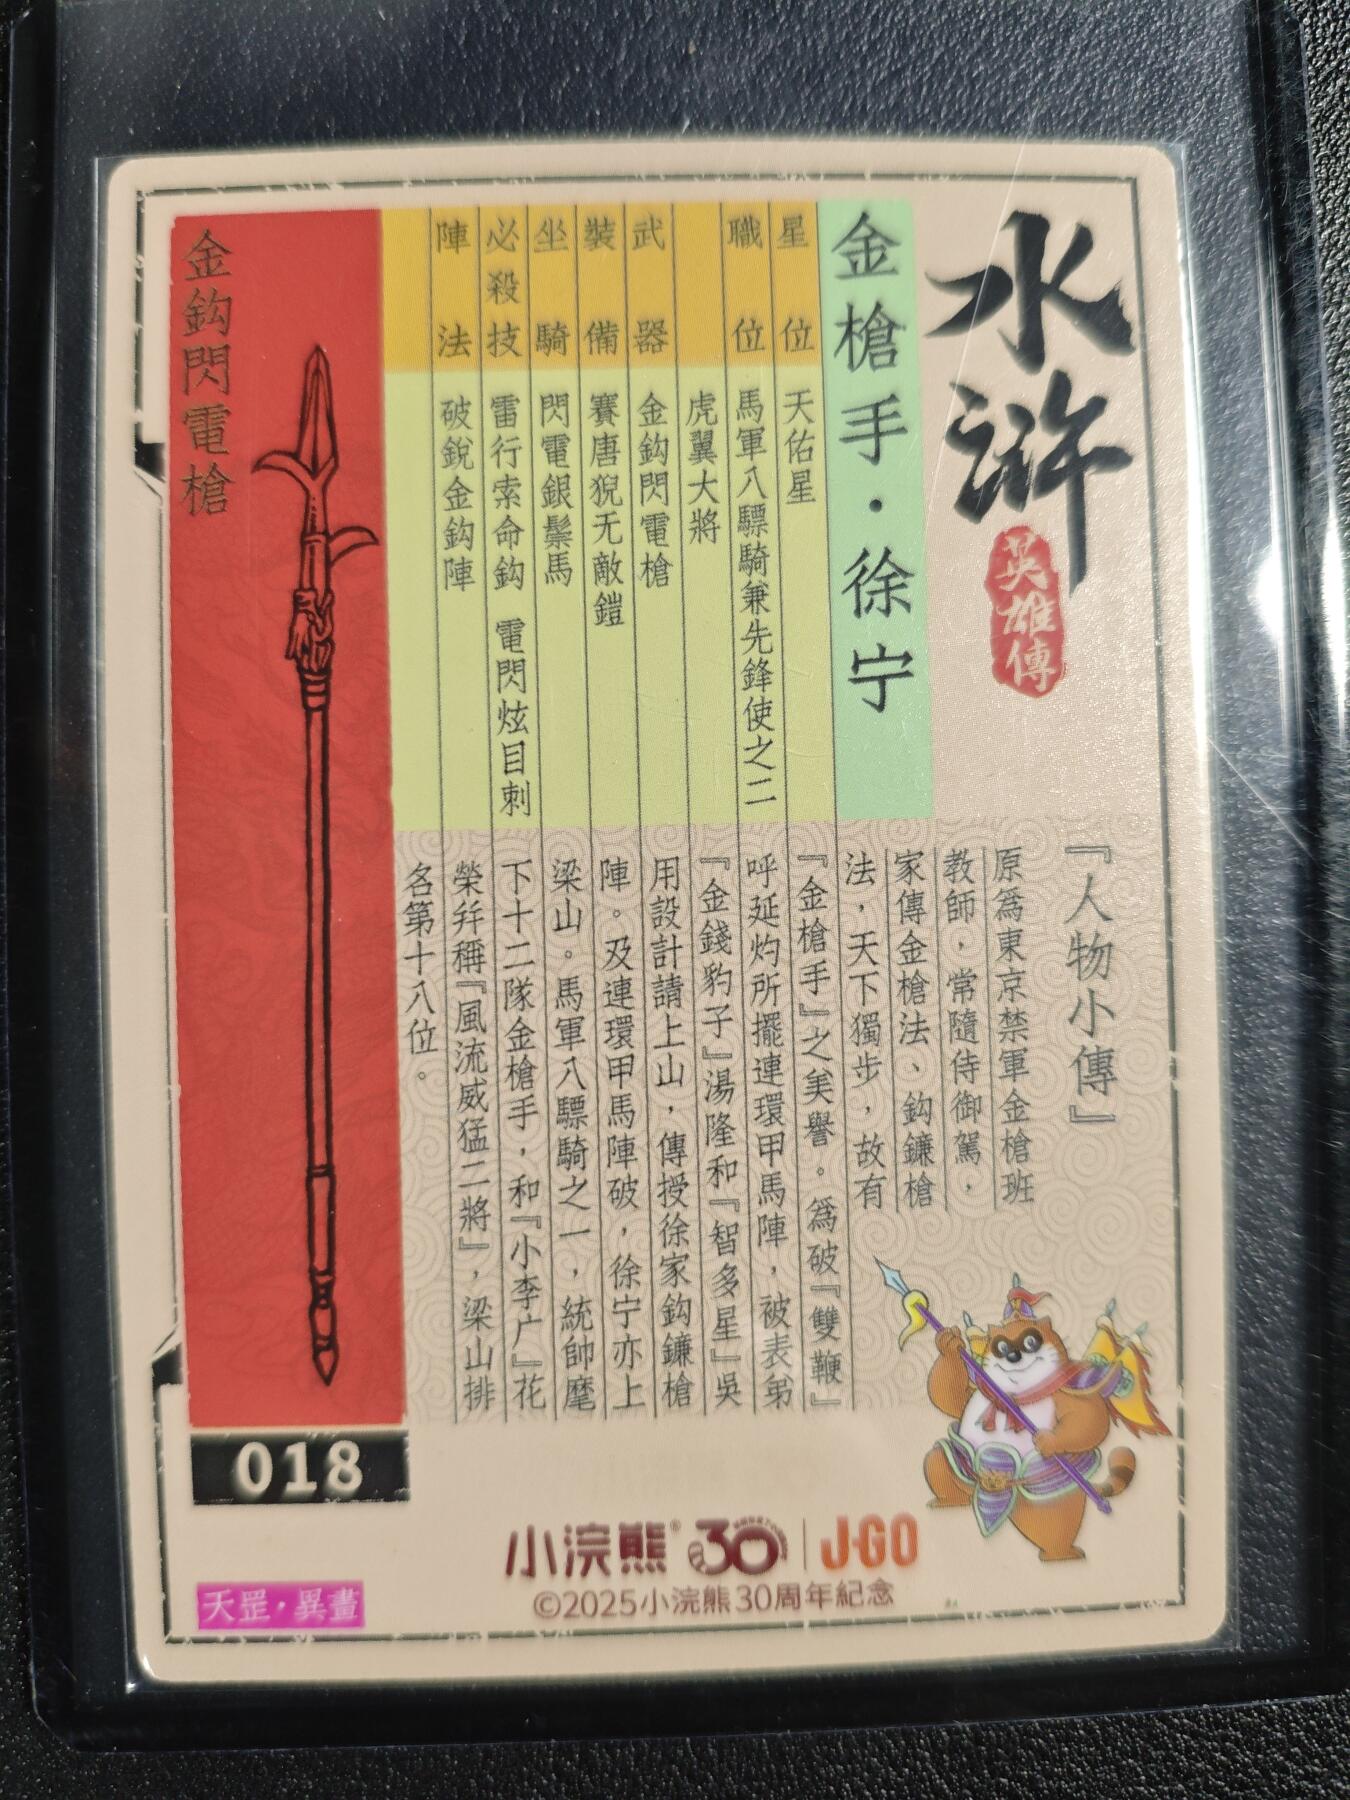 水滸
英雄傳
金槍手·徐宁
星位 天佑星
職位 馬軍八驃騎兼先鋒使之二
虎翼大將
武器 金鈎閃電槍
裝備 賽唐猊无敵鎧
坐騎 閃電銀鬃馬
必殺技 雷行索命鈎 電閃炫目刺
陣法 破銳金鈎陣
『人物小傳』
原爲東京禁軍金槍班
教師，常隨侍御駕，
家傳金槍法、鈎鐮槍
法，天下獨步，故有
『金槍手』之美譽。爲破『雙鞭』
呼延灼所擺連環甲馬陣，被表弟
『金錢豹子』湯隆和『智多星』吳
用設計請上山，傳授徐家鈎鐮槍
陣。及連環甲馬陣破，徐宁亦上
梁山。馬軍八驃騎之一，統帥麾
下十二隊金槍手，和『小李广』花
榮幷稱『風流威猛二將』，梁山排
名第十八位。
金鈎閃電槍
018
天罡·異畫
小浣熊® 30 | J·GO
©2025小浣熊30周年紀念